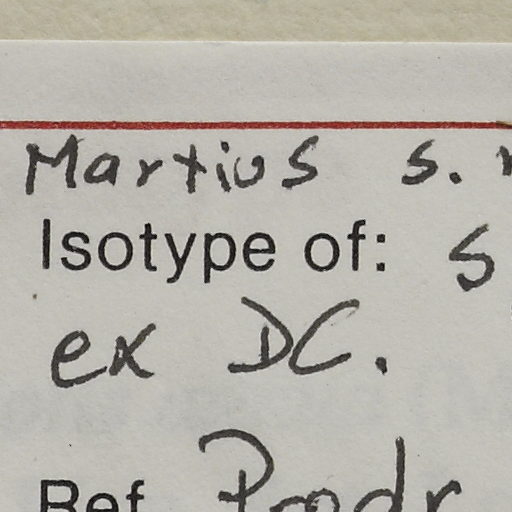 Martius s.
Isotype of: S
ex DC.
Ref. Prodr